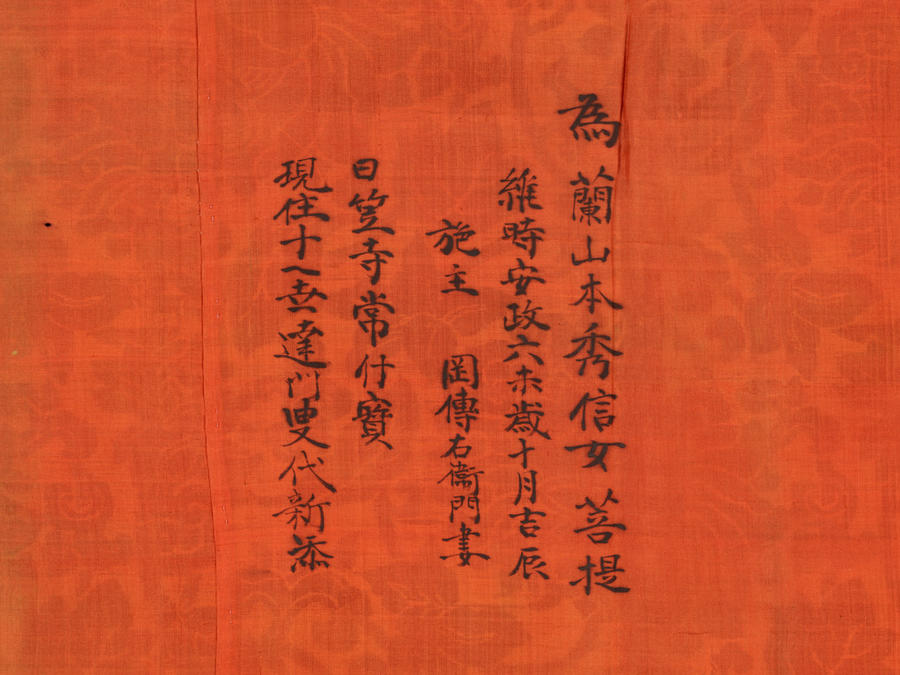 為 蘭山本秀信女 菩提
維時安政六未歳十月吉辰
施主 岡傳右衛門妻
日笠寺常什寳
現住十一世達門叟代新添